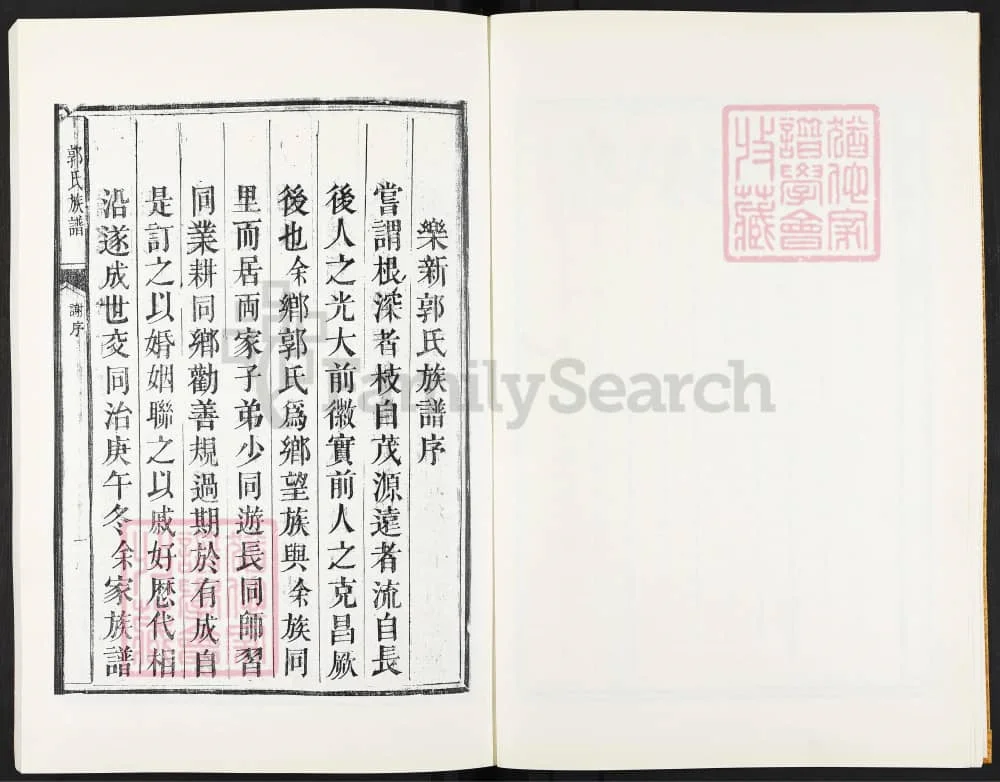 樂新郭氏族譜序
嘗謂根深者枝自茂源遠者流自長
後人之光大前徽實前人之克昌厥
後也余鄉郭氏爲鄉望族與余族同
里而居両家子弟少同遊長同師習
同業耕同鄉勸善規過期於有成自
是訂之以婚姻聯之以戚好歷代相
沿遂成世交同治庚午冬余家族譜
郭氏族譜
謝序
一
譜學會
收藏
FamilySearch